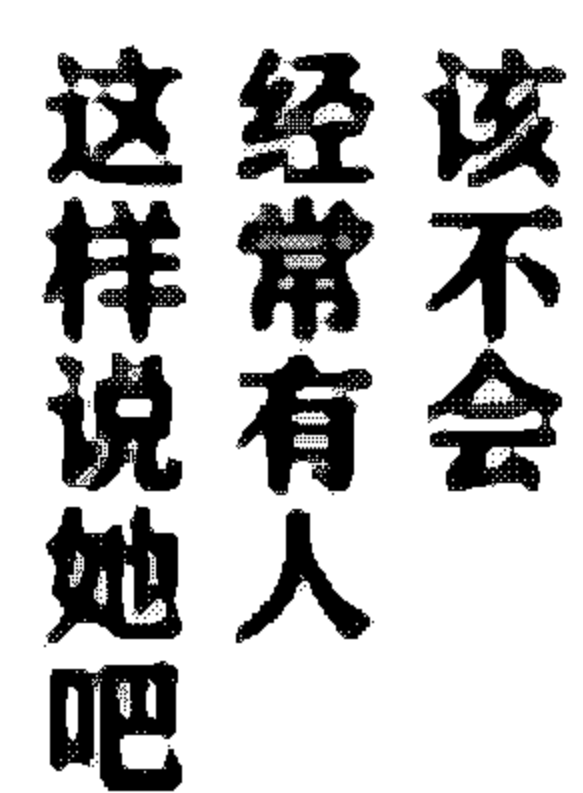 该不会
经常有人
这样说她吧